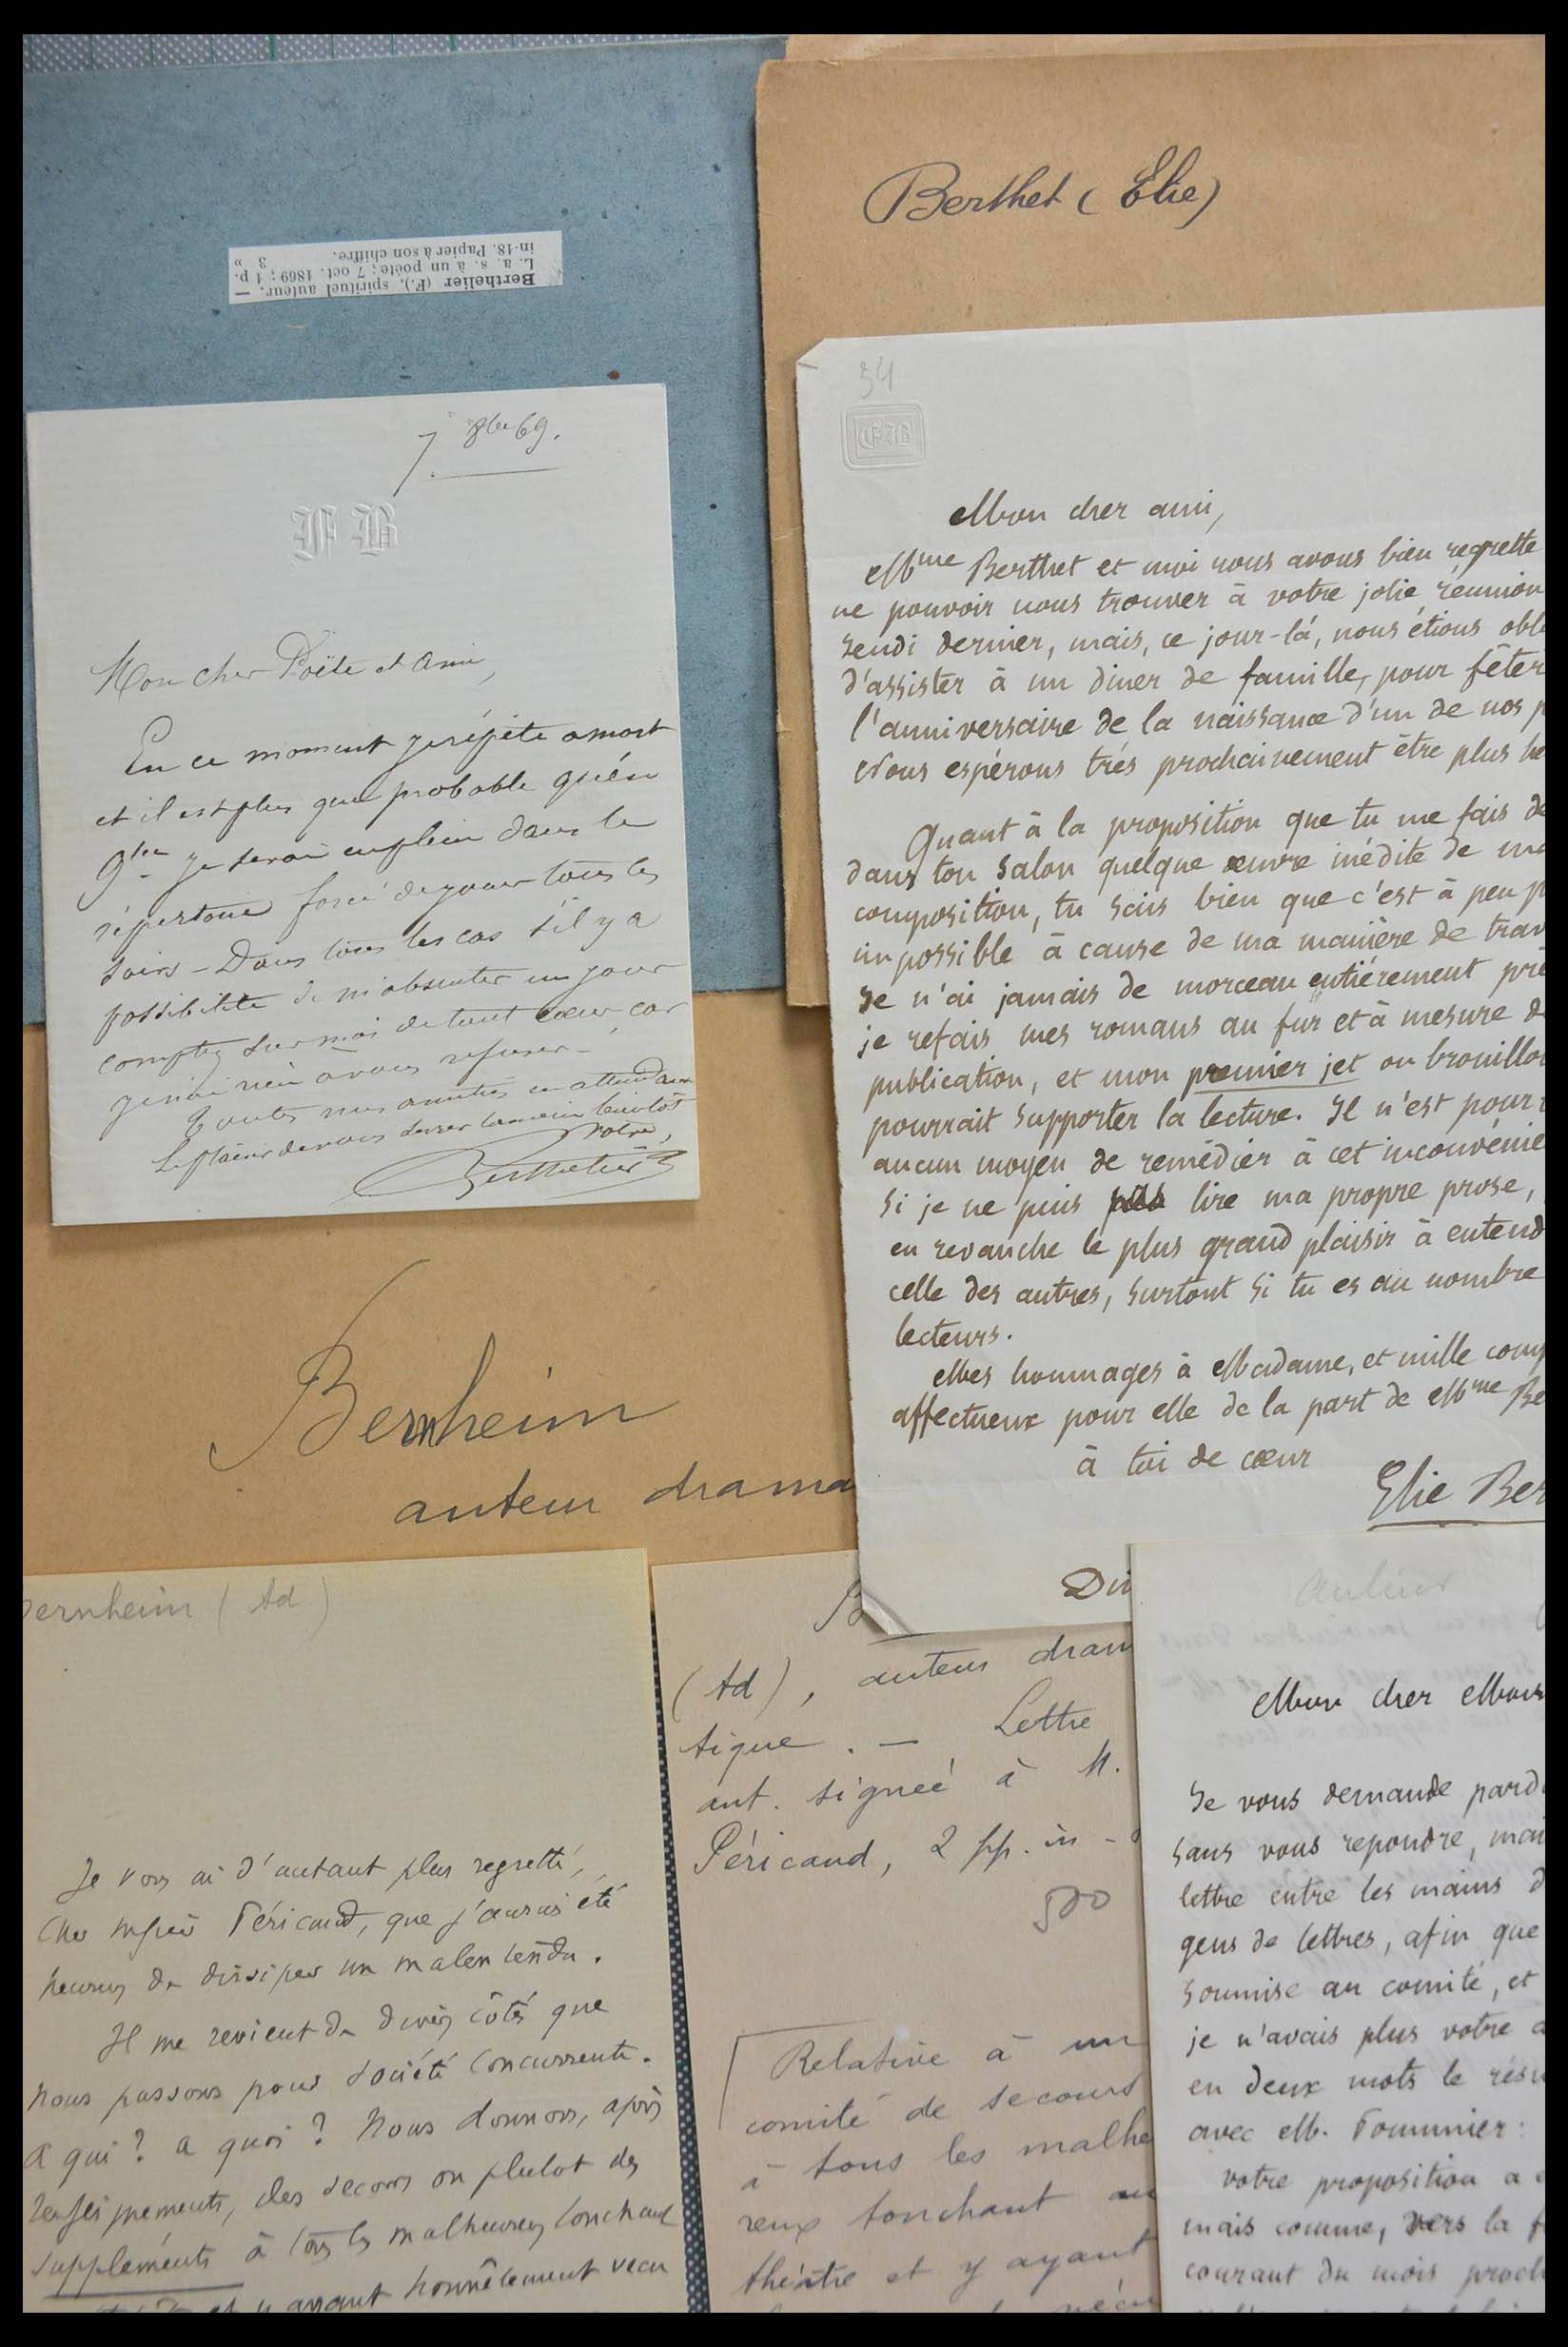 Berthelier (F.), spirituel auteur. —
L. a. s. à un poète; 7 oct. 1869; 1 p.
in-18. Papier à son chiffre. 3 »
7. 8bre 69.
F B
Mon cher Poëte et ami,
En ce moment je répète a mort
et il est plus que probable qu'en
9bre je serai en plein dans le
répertoire forcé de jouer tous les
soirs – Dans tous les cas s'il y a
possibilité de m'absenter un jour
comptez sur moi de tout cœur, car
je n'ai rien a vous refuser –
Toutes mes amitiés en attendant
le plaisir de vous serrer la main bientôt
Votre,
Berthelier
Berthet (Élie)
34
Mon cher ami,
Mme Berthet et moi nous avons bien regretté
ne pouvoir nous trouver à votre jolie réunion
jeudi dernier, mais, ce jour-là, nous étions obl
d'assister à un diner de famille, pour fêter
l'anniversaire de la naissance d'un de nos p
Nous espérons très prochainement être plus he
Quant à la proposition que tu me fais de
dans ton salon quelque œuvre inédite de ma
composition, tu sais bien que c'est à peu p
impossible à cause de ma manière de trav
Je n'ai jamais de morceau entiérement prê
je refais mes romans au fur et à mesure d
publication, et mon premier jet ou brouillon
pourrait supporter la lecture. Il n'est pour
aucun moyen de remédier à cet inconvénie
Si je ne puis pas lire ma propre prose,
en revanche le plus grand plaisir à entend
celle des autres, surtout si tu es au nombre
lecteurs.
Mes hommages à Madame, et mille comp
affectueux pour elle de la part de Mme Be
à toi de cœur
Elie Ber
Bernheim
auteur drama
Bernheim (Ad)
Je vous ai d'autant plus regretté,
cher Péricaud, que j'aurais été
heureux de dissiper un malentendu.
Il me revient de divers côtés que
nous passons pour société concurrente.
A qui? a quoi? Nous donnons, après
renseignements, des secours ou plutot des
suppléments à tous les malheureux touchant
ayant honnêtement vécu
B
(Ad), auteur dram
tique. — Lettre
aut. signée à M.
Péricaud, 2 pp. in-
500
Relative à un
comité de secours
à tous les malheu
reux touchant au
théâtre et y ayant
vécu
Dim
auteur
Mon cher Mons
Je vous demande pardo
sans vous repondre, mai
lettre entre les mains d
gens de lettres, afin que
soumise au comité, et
je n'avais plus votre a
en deux mots le résu
avec M. Pommier:
votre proposition a
mais comme, vers la f
courant du mois proch